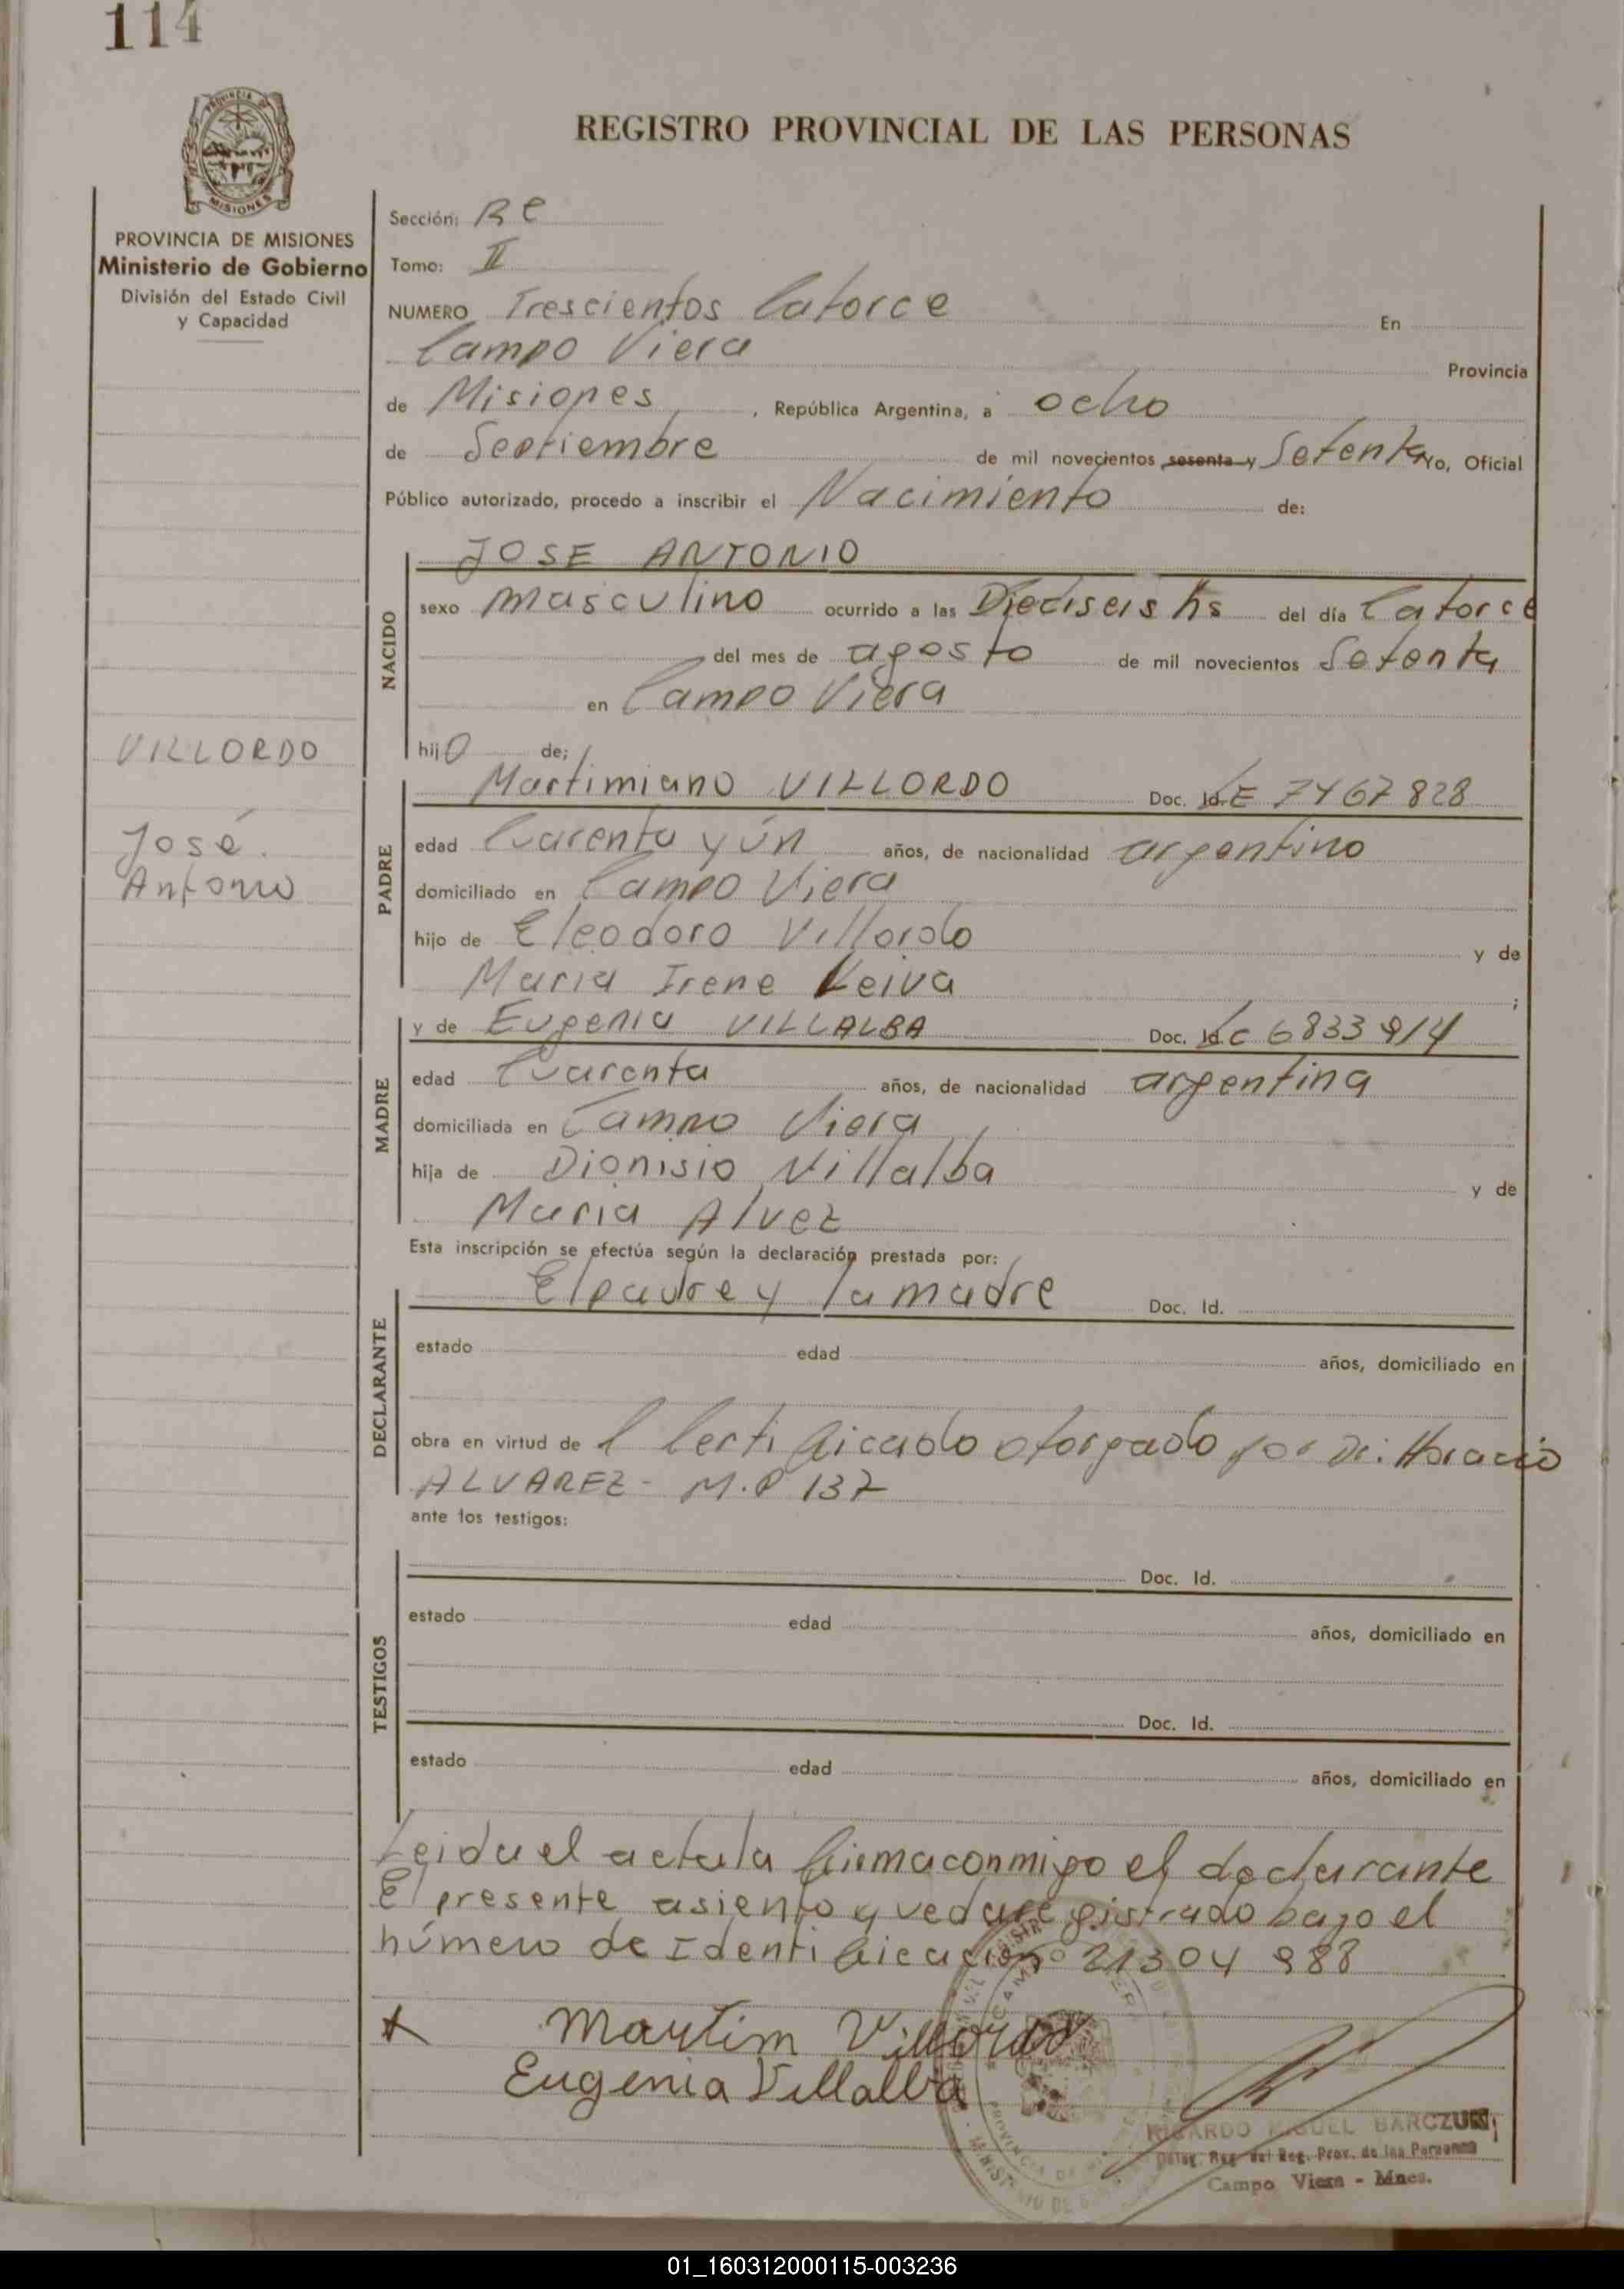 114
PROVINCIA DE
MISIONES
REGISTRO PROVINCIAL DE LAS PERSONAS
PROVINCIA DE MISIONES
Ministerio de Gobierno
División del Estado Civil
y Capacidad
Sección: Re
Tomo: II
NUMERO Trescientos Catorce En
Campo Viera Provincia
de Misiones, República Argentina, a ocho
de Septiembre de mil novecientos sesenta y Setenta Yo, Oficial
Público autorizado, procedo a inscribir el Nacimiento de:
JOSE ANTONIO
NACIDO
sexo masculino ocurrido a las Dieciseis hs del día Catorce
del mes de agosto de mil novecientos Setenta
en Campo Viera
hijo de;
VILLORDO
José
Antonio
PADRE
Martimiano VILLORDO Doc. Id. LE 7467828
edad Cuarenta y ún años, de nacionalidad argentino
domiciliado en Campo Viera
hijo de Eleodoro Villordo y de
Maria Irene Leiva ;
MADRE
y de Eugenia VILLALBA Doc. Id. LC 6833914
edad Cuarenta años, de nacionalidad argentina
domiciliada en Campo Viera
hija de Dionisio Villalba y de
Maria Alvez
Esta inscripción se efectúa según la declaración prestada por:
DECLARANTE
El padre y la madre Doc. Id.
estado edad años, domiciliado en
obra en virtud de l Certificado otorgado por Dr. Horacio
ALVAREZ - M.P 137
ante los testigos:
TESTIGOS
Doc. Id.
estado edad años, domiciliado en
Doc. Id.
estado edad años, domiciliado en
Leida el acta la firma conmigo el declarante
El presente asiento queda registrado bajo el
número de Identificación Nº 21304 988
Martim Villordo
Eugenia Villalba
RICARDO MIGUEL BARCZUK
Deleg. Reg. del Reg. Prov. de las Personas
Campo Viera - Mnes.
01_160312000115-003236